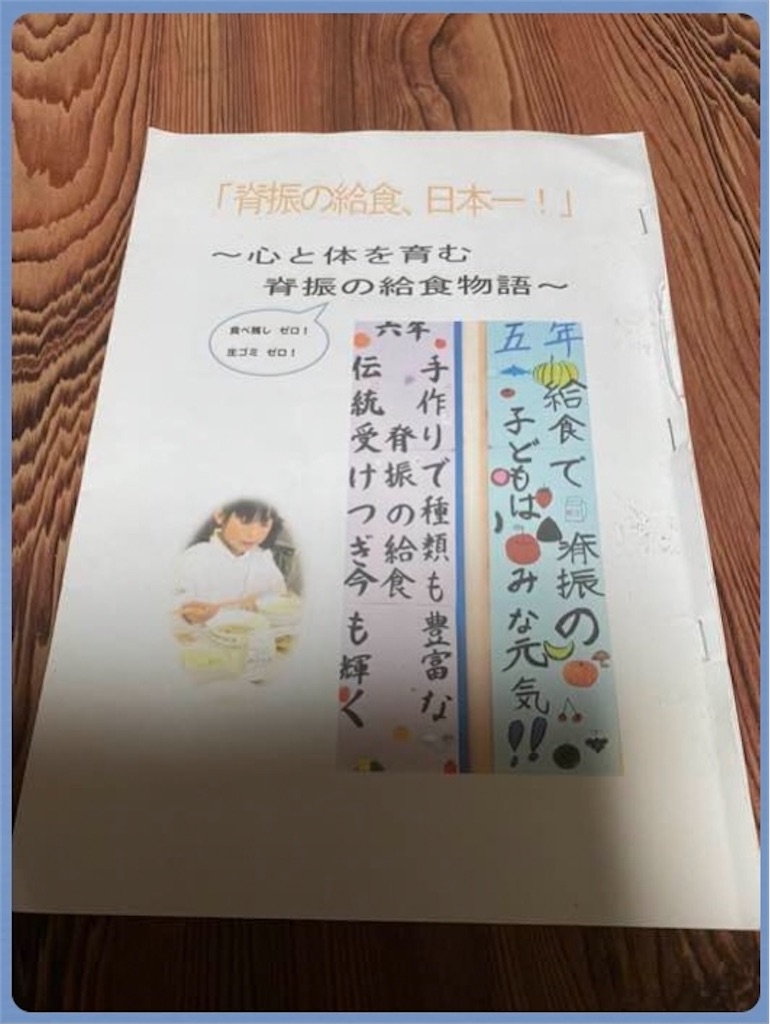 「脊振の給食、日本一！」
～心と体を育む
脊振の給食物語～
食べ残し ゼロ！
生ゴミ ゼロ！
五年
給食で 脊振の
子どもは みな元気!!
六年
手作りで種類も豊富な
脊振の給食
伝統受けつぎ今も輝く